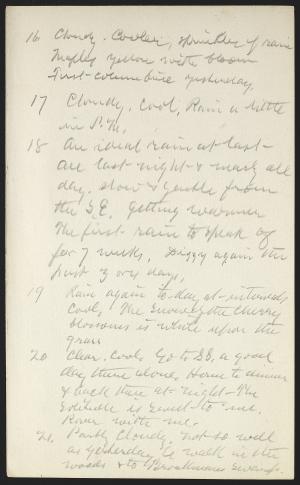 16 Cloudy. Cooler, sprinkle of rain
Maples yellow with bloom
First columbine yesterday.
17 Cloudy, cool, Rain a little
in P.M.
18 An ideal rain at last -
all last night & nearly all
day. slow & gentle from
the S.E. getting warmer
The first rain to speak of
for 7 weeks. Diggy again the
past 3 or 4 days.
19 Rain again to-day at intervals
Cool, The snow of the cherry
blossoms is white upon the
grass
20 Clear. Cool. Go to SS, a good
day there alone, Home to dinner
& back there at night - The
Solitude is sweet to me.
Rover with me.
21. Partly Cloudy, not so well
as yesterday, a walk in the
woods & to Brookmans Swamp.